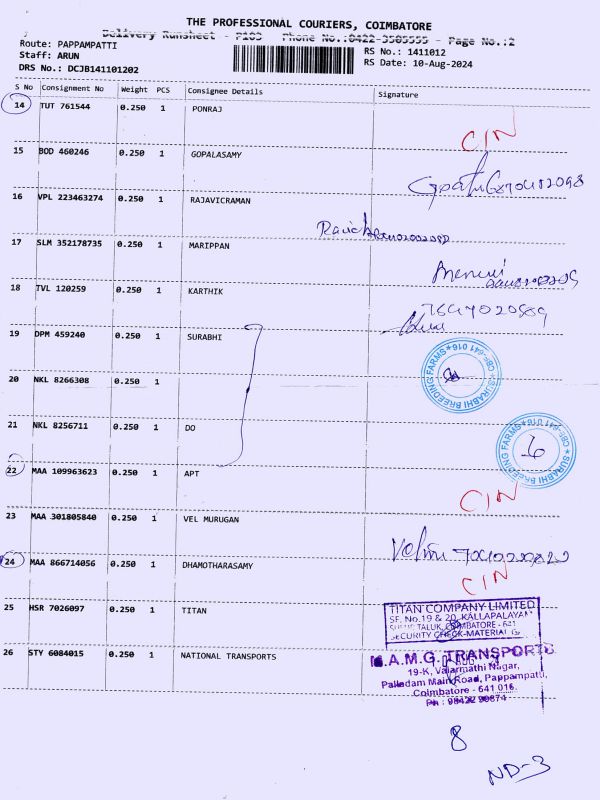 THE PROFESSIONAL COURIERS, COIMBATORE
Delivery Runsheet - P103 Phone No.:0422-3505555 - Page No.:2
Route: PAPPAMPATTI RS No.: 1411012
Staff: ARUN RS Date: 10-Aug-2024
DRS No.: DCJB141101202
S No Consignment No Weight PCS Consignee Details Signature
14 TUT 761544 0.250 1 PONRAJ
CIN
15 BOD 460246 0.250 1 GOPALASAMY
16 VPL 223463274 0.250 1 RAJAVICRAMAN
17 SLM 352178735 0.250 1 MARIPPAN
18 TVL 120259 0.250 1 KARTHIK
19 DPM 459240 0.250 1 SURABHI
SURABHI BREEDING FARMS * CBE-641 016 *
20 NKL 8266308 0.250 1
21 NKL 8256711 0.250 1 DO
SURABHI BREEDING FARMS * CBE-641 016 *
6
22 MAA 109963623 0.250 1 APT
CIN
23 MAA 301805840 0.250 1 VEL MURUGAN
24 MAA 866714056 0.250 1 DHAMOTHARASAMY
CIN
25 HSR 7026097 0.250 1 TITAN
TITAN COMPANY LIMITED
SF. No.19 & 20, KALLAPALAYAM
TALUK, COIMBATORE - 641
SECURITY CHECK-MATERIAL
26 STY 6084015 0.250 1 NATIONAL TRANSPORTS
M.A.M.G. TRANSPORTS
19-K, Valarmathi Nagar,
Palladam Main Road, Pappampatti,
Coimbatore - 641 016.
Ph : 98422 90874
8
ND-3